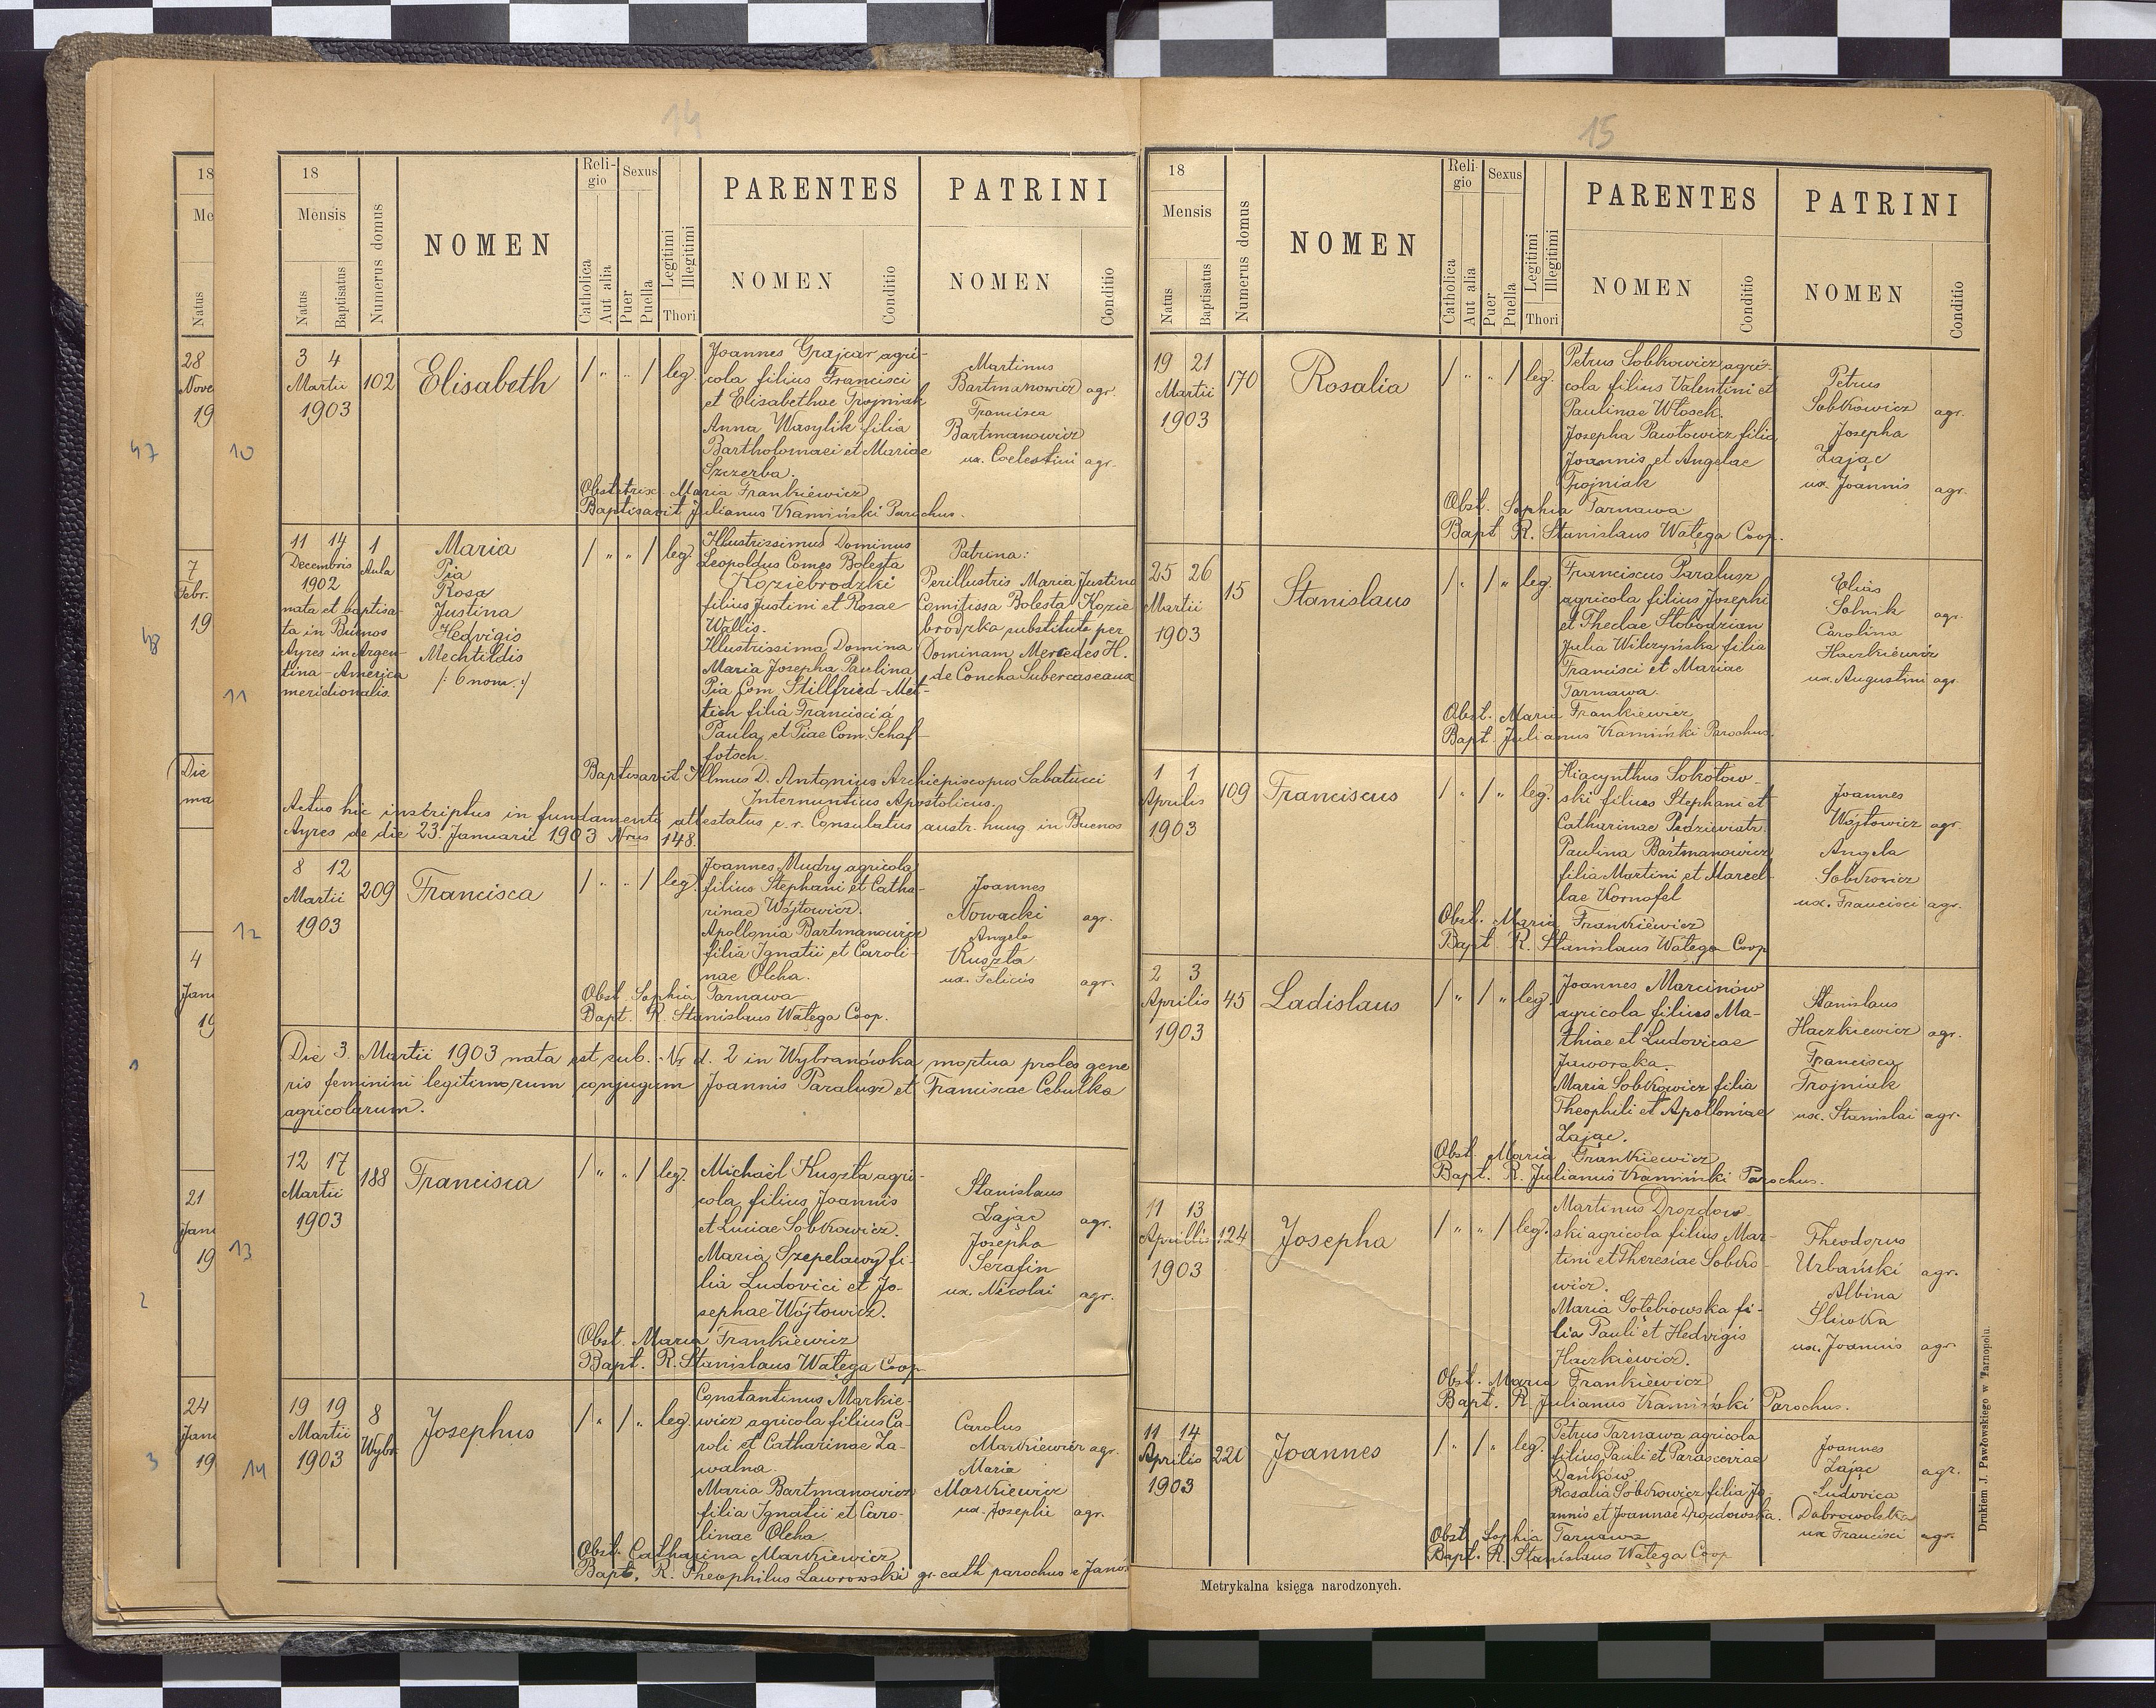 14
18
Mensis
Natus
Baptisatus
Numerus domus
NOMEN
Religio
Catholica
Aut alia
Sexus
Puer
Puella
Legitimi
Illegitimi
Thori
PARENTES
NOMEN
Conditio
PATRINI
NOMEN
Conditio
10
3 4
Martii
1903
102
Elisabeth
/ " " / leg.
Joannes Grajcar agri-
cola filius Francisci
et Elisabethae Trojniak
Anna Wasylik filia
Bartholomaei et Mariae
Szczerba.
Martinus
Bartmanowicz agr.
Francisca
Bartmanowicz
ux. Coelestini agr.
Obstetrix Maria Frankiewicz
Baptisavit Julianus Kamiński Parochus.
11
11 14
Decembris
1902
nata et baptisa-
ta in Buenos
Ayres in Argen-
tina - America
meridionalis.
1
Aula
Maria
Pia
Rosa
Justina
Hedvigis
Mechtildis
/: 6 nom. :/
/ " " / leg.
Illustrissimus Dominus
Leopoldus Comes Bolesta
Koziebrodzki
filius Justini et Rosae
Wallis.
Illustrissima Domina
Maria Josepha Paulina
Pia Com. Stillfried-Met-
tich filia Francisci á
Paula et Piae Com. Schaf-
fotsch.
Patrina:
Perillustris Maria Justina
Comitissa Bolesta Kozie
brodzka substituta per
Dominam Mercedes H.
de Concha Subercaseaux
Baptisavit Illmus D. Antonius Archiepiscopus Sabatucci
Internuntius Apostolicus.
Actus hic inscriptus in fundamento attestatus c. r. Consulatus austr. hung in Buenos
Ayres de die 23. Januarii 1903 Nrus 148.
12
8 12
Martii
1903
209
Francisca
/ " " / leg.
Joannes Mudry agricola
filius Stephani et Catha-
rinae Wójtowicz.
Apollonia Bartmanowicz
filia Ignatii et Caroli-
nae Olcha.
Joannes
Nowacki agr.
Angela
Kuszta
ux. Felicis agr.
Obst. Sophia Tarnawa
Bapt. R. Stanislaus Wałęga Coop.
Die 3. Martii 1903 nata est sub. Nr d. 2 in Wybranówka mortua proles gene
ris feminini legitimorum conjugum Joannis Paralusz et Franciscae Cebulka
agricolarum.
13
12 17
Martii
1903
188
Francisca
/ " " / leg.
Michaël Kuszta agri-
cola filius Joannis
et Luciae Sobkowicz.
Maria Szepelawy fi-
lia Ludovici et Jo-
sephae Wójtowicz.
Stanislaus
Zając agr.
Josepha
Serafin
ux. Nicolai agr.
Obst. Maria Frankiewicz
Bapt. R. Stanislaus Wałęga Coop
14
19 19
Martii
1903
8
Wybr.
Josephus
/ " / " leg.
Constantinus Markie-
wicz agricola filius Ca-
roli et Catharinae Za-
walna.
Maria Bartmanowicz
filia Ignatii et Caro-
linae Olcha
Carolus
Markiewicz agr.
Maria
Markiewicz
ux. Josephi agr.
Obst. Catharina Markiewicz
Bapt. R. Theophilus Lawrowski gr. cath parochus e Janó
15
18
Mensis
Natus
Baptisatus
Numerus domus
NOMEN
Religio
Catholica
Aut alia
Sexus
Puer
Puella
Legitimi
Illegitimi
Thori
PARENTES
NOMEN
Conditio
PATRINI
NOMEN
Conditio
19 21
Martii
1903
170
Rosalia
/ " " / leg.
Petrus Sobkowicz agri-
cola filius Valentini et
Paulinae Włosek.
Josepha Pawłowicz filia
Joannis et Angelae
Trojniak
Petrus
Sobkowicz agr.
Josepha
Zając
ux. Joannis agr.
Obst. Sophia Tarnawa
Bapt R. Stanislaus Wałęga Coop.
25 26
Martii
1903
15
Stanislaus
/ " / " leg.
Franciscus Paralusz
agricola filius Josephi
et Theclae Słobodzian
Julia Wilczyńska filia
Francisci et Mariae
Tarnawa.
Elias
Solnik agr.
Carolina
Haczkiewicz
ux. Augustini agr.
Obst. Maria Frankiewicz
Bapt. Julianus Kamiński Parochus.
1 1
Aprilis
1903
109
Franciscus
/ " / " leg.
Hiacynthus Sokołow-
ski filius Stephani et
Catharinae Pędziwiatr.
Paulina Bartmanowicz
filia Martini et Marcel-
lae Kornafel
Joannes
Wójtowicz agr.
Angela
Sobkowicz
ux. Francisci agr.
Obst. Maria Frankiewicz
Bapt. R. Stanislaus Wałęga Coop
2 3
Aprilis
1903
45
Ladislaus
/ " / " leg.
Joannes Marcinów
agricola filius Ma-
thiae et Ludovicae
Jaworska.
Maria Sobkowicz filia
Theophili et Apolloniae
Zając.
Stanislaus
Haczkiewicz agr.
Francisca
Trojniak
ux. Stanislai agr.
Obst. Maria Frankiewicz
Bapt. R. Julianus Kamiński Parochus.
11 13
Aprillis
1903
124
Josepha
/ " " / leg.
Martinus Drozdow-
ski agricola filius Mar-
tini et Theresiae Sobko-
wicz.
Maria Gołębiowska fi-
lia Pauli et Hedvigis
Haczkiewicz.
Theodorus
Urbański agr.
Albina
Śliwka
ux. Joannis agr.
Obst. Maria Frankiewicz
Bapt. R. Julianus Kamiński Parochus.
11 14
Aprilis
1903
220
Joannes
/ " / " leg.
Petrus Tarnawa agricola
filius Pauli et Parasceviae
Dańków
Rosalia Sobkowicz filia Jo-
annis et Joannae Drozdowska.
Joannes
Zając agr.
Ludovica
Dobrowolska
ux Francisci agr.
Obst. Sophia Tarnawa
Bapt. R. Stanislaus Wałęga Coop
Metrykalna księga narodzonych.
Drukiem J. Pawłowskiego w Tarnopolu.
18
Me
Natus
28
Nove
19
47
7
Febr.
19
48
Die
ma
4
Janu
19
1
21
Janu
19
2
24
Janu
19
3